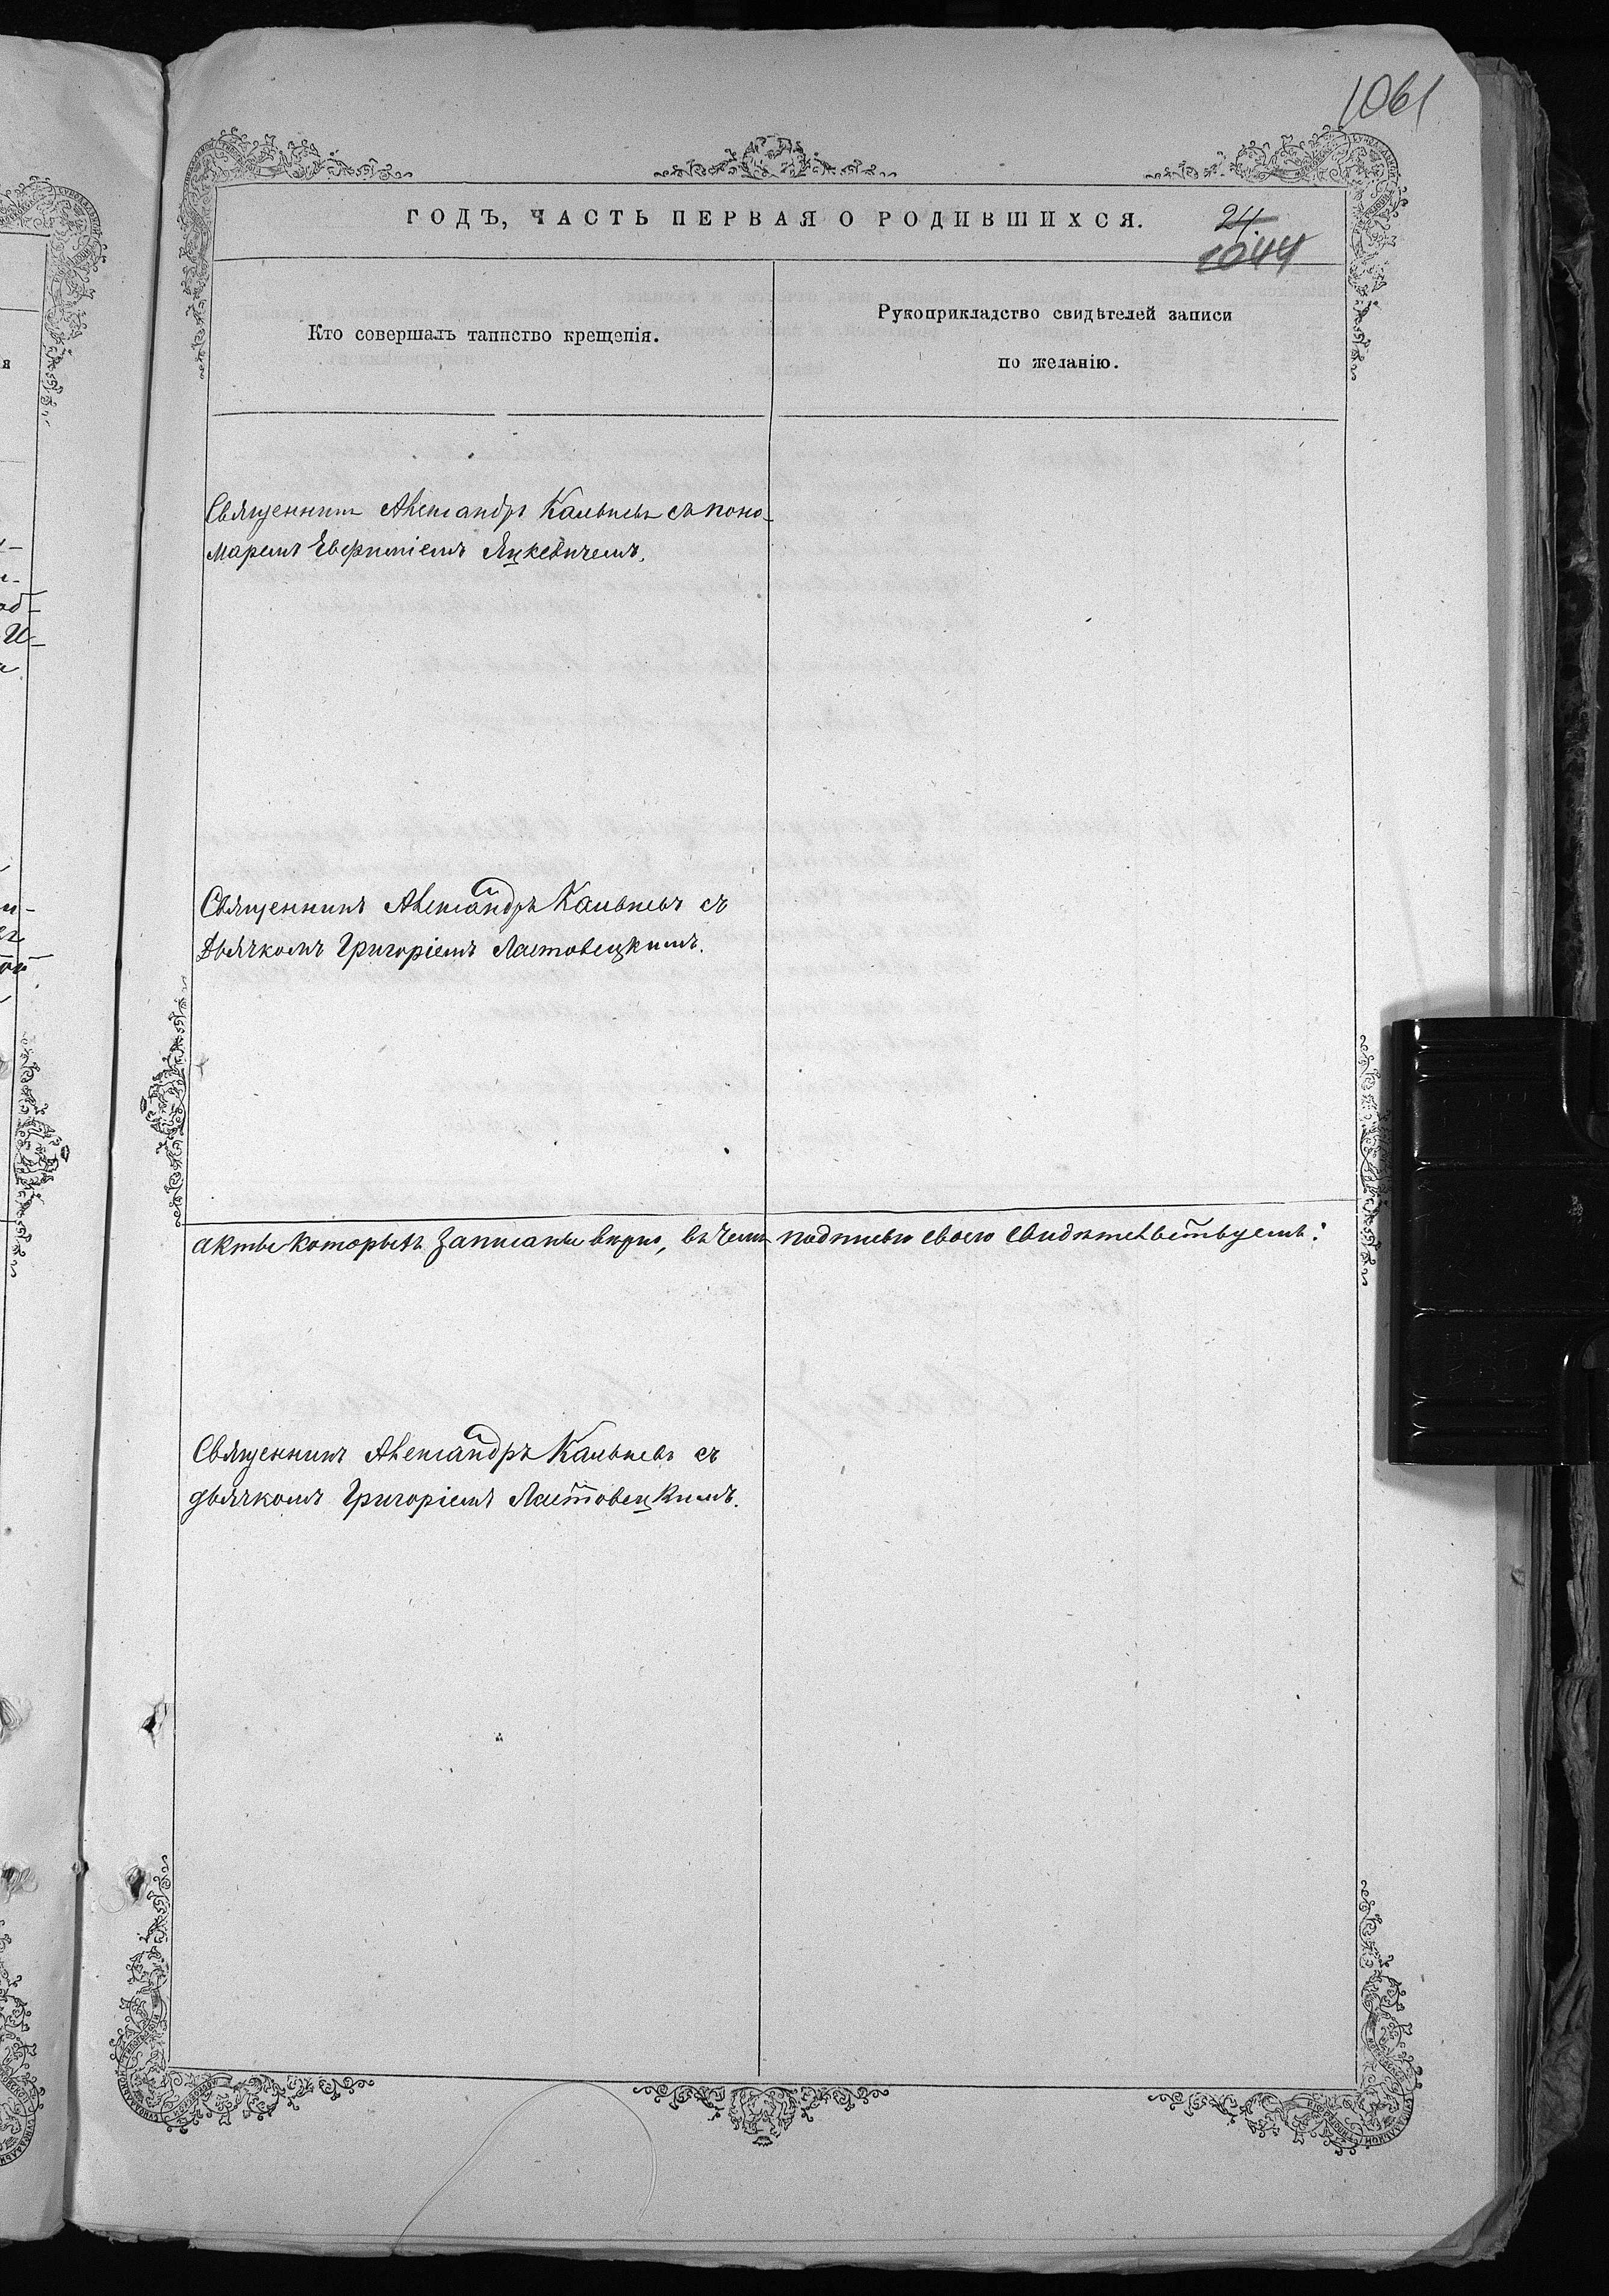 1061
ГОДЪ, ЧАСТЬ ПЕРВАЯ О РОДИВШИХСЯ.
24.
1044
Кто совершалъ таинство крещенія.
Рукоприкладство свидѣтелей записи
по желанію.
Священникъ Александръ Кальневъ съ поно-
маремъ Евфиміемъ Яцкевичемъ.
Священникъ Александръ Кальневъ съ
дьячкомъ Григоріемъ Ластовецкимъ.
акты которыхъ записаны вѣрно, въ чемъ подписью своею свидѣтельствуемъ:
Священникъ Александръ Кальневъ съ
дьячкомъ Григоріемъ Ластовецкимъ.